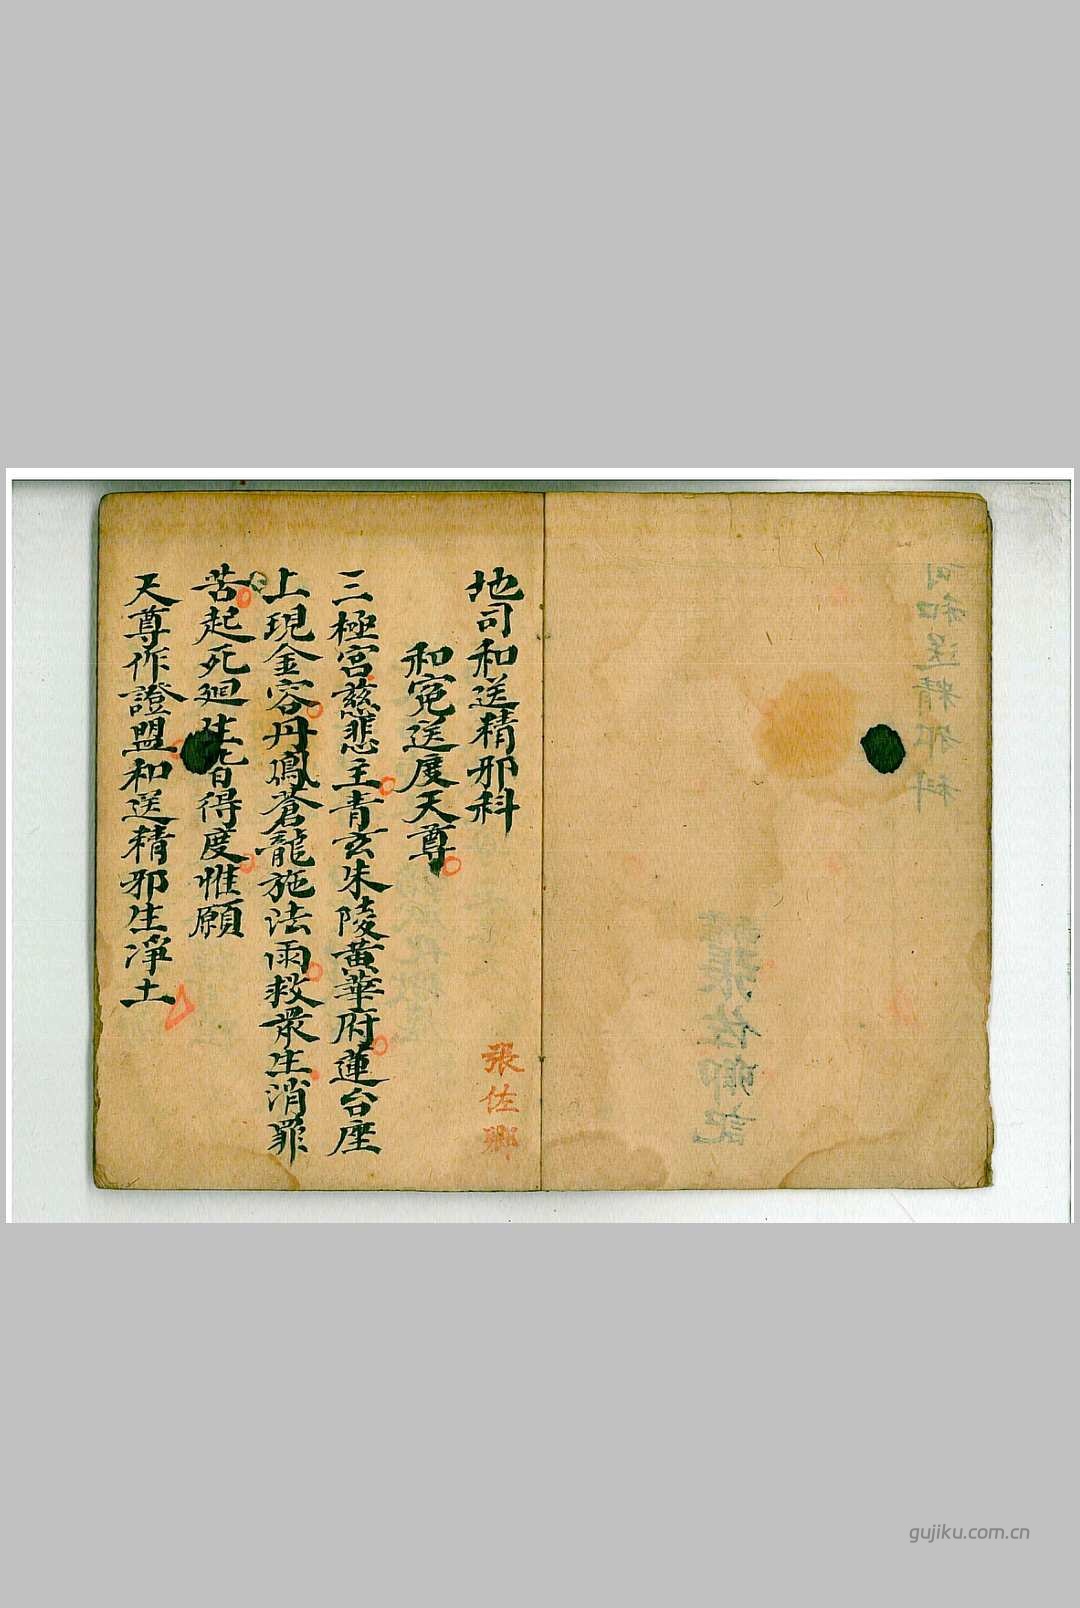 地司和送精邪科
張佐卿
和冤送度天尊
三極宮慈悲主青玄朱陵黃華府蓮台座
上現金容丹鳳蒼龍施法雨救衆生消罪
苦起死廻生皆得度惟願
天尊作證盟和送精邪生凈土
司和送精邪科
張佐卿記
gujiku.com.cn